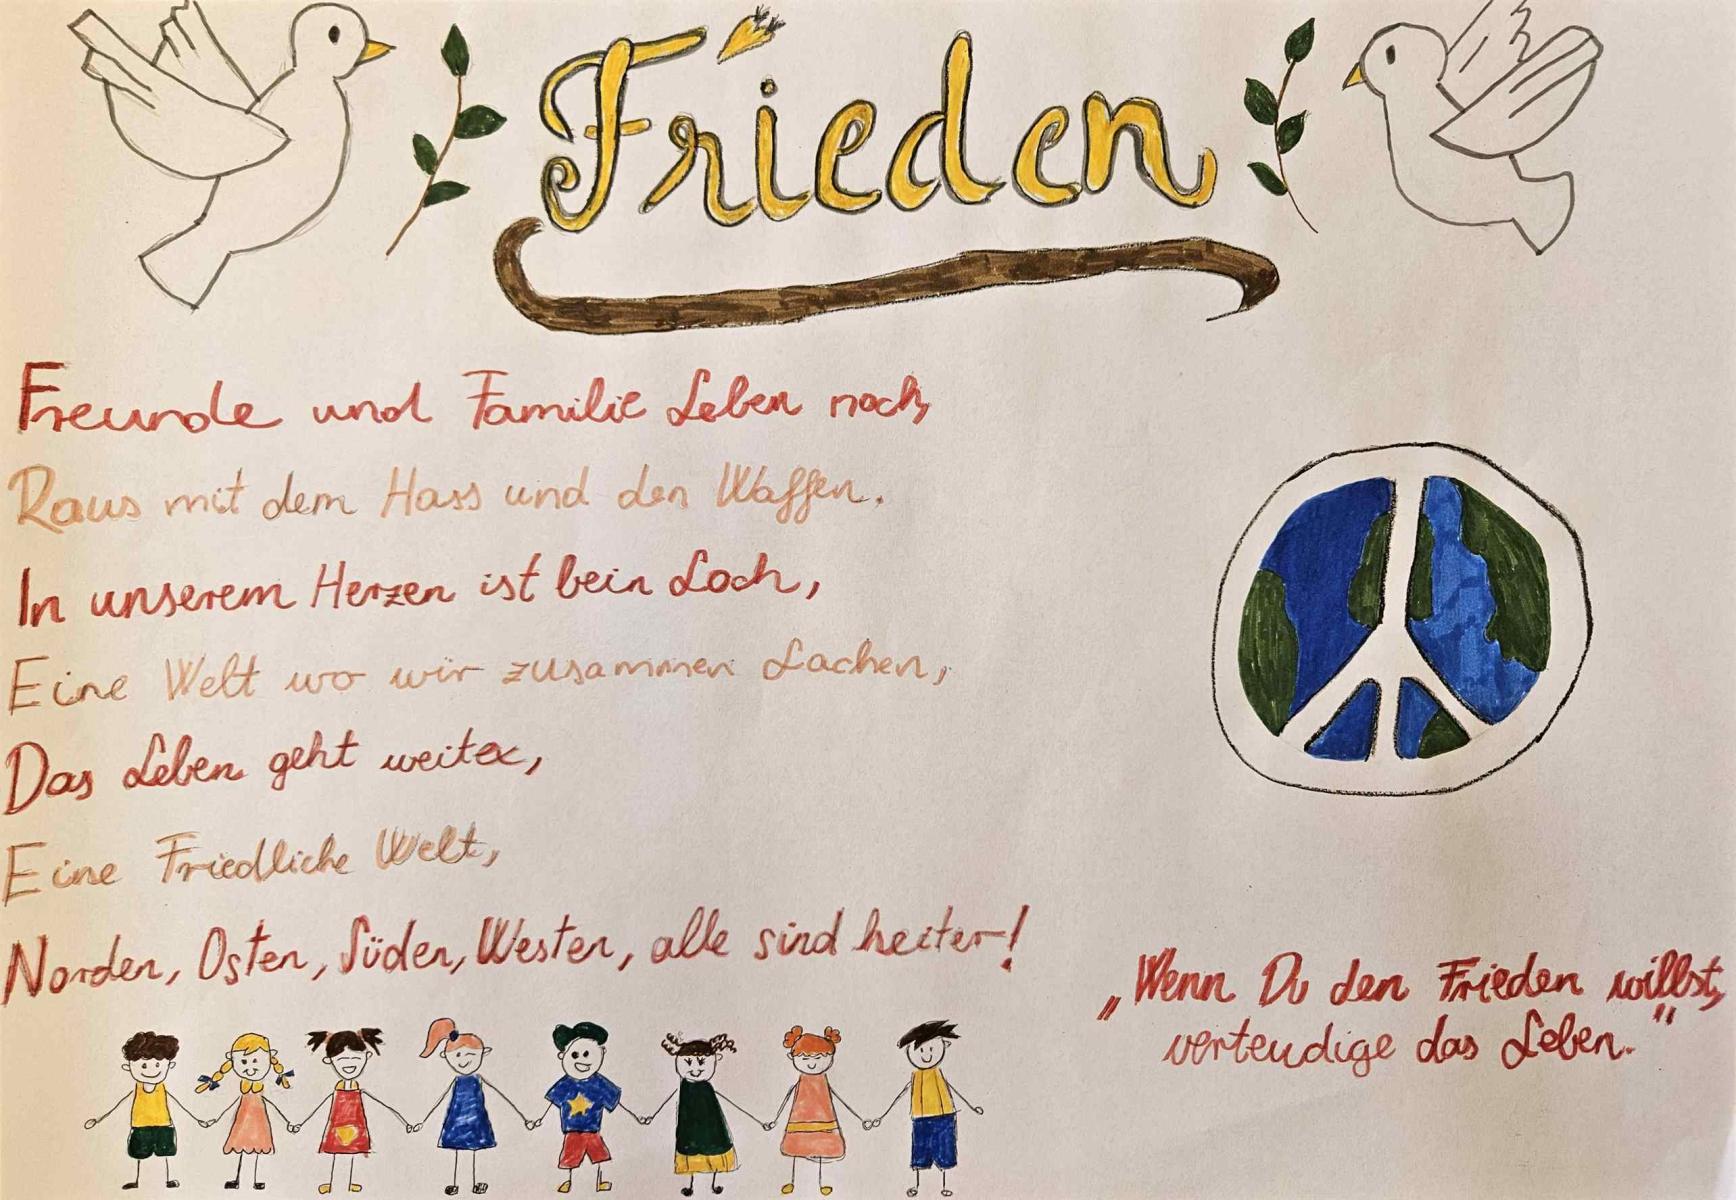 Frieden
Freunde und Familie Leben noch,
Raus mit dem Hass und den Waffen.
In unserem Herzen ist kein Loch,
Eine Welt wo wir zusammen Lachen,
Das Leben geht weiter,
Eine Friedliche Welt,
Norden, Osten, Süden, Westen, alle sind heiter!
„Wenn Du den Frieden willst,
verteudige das Leben."